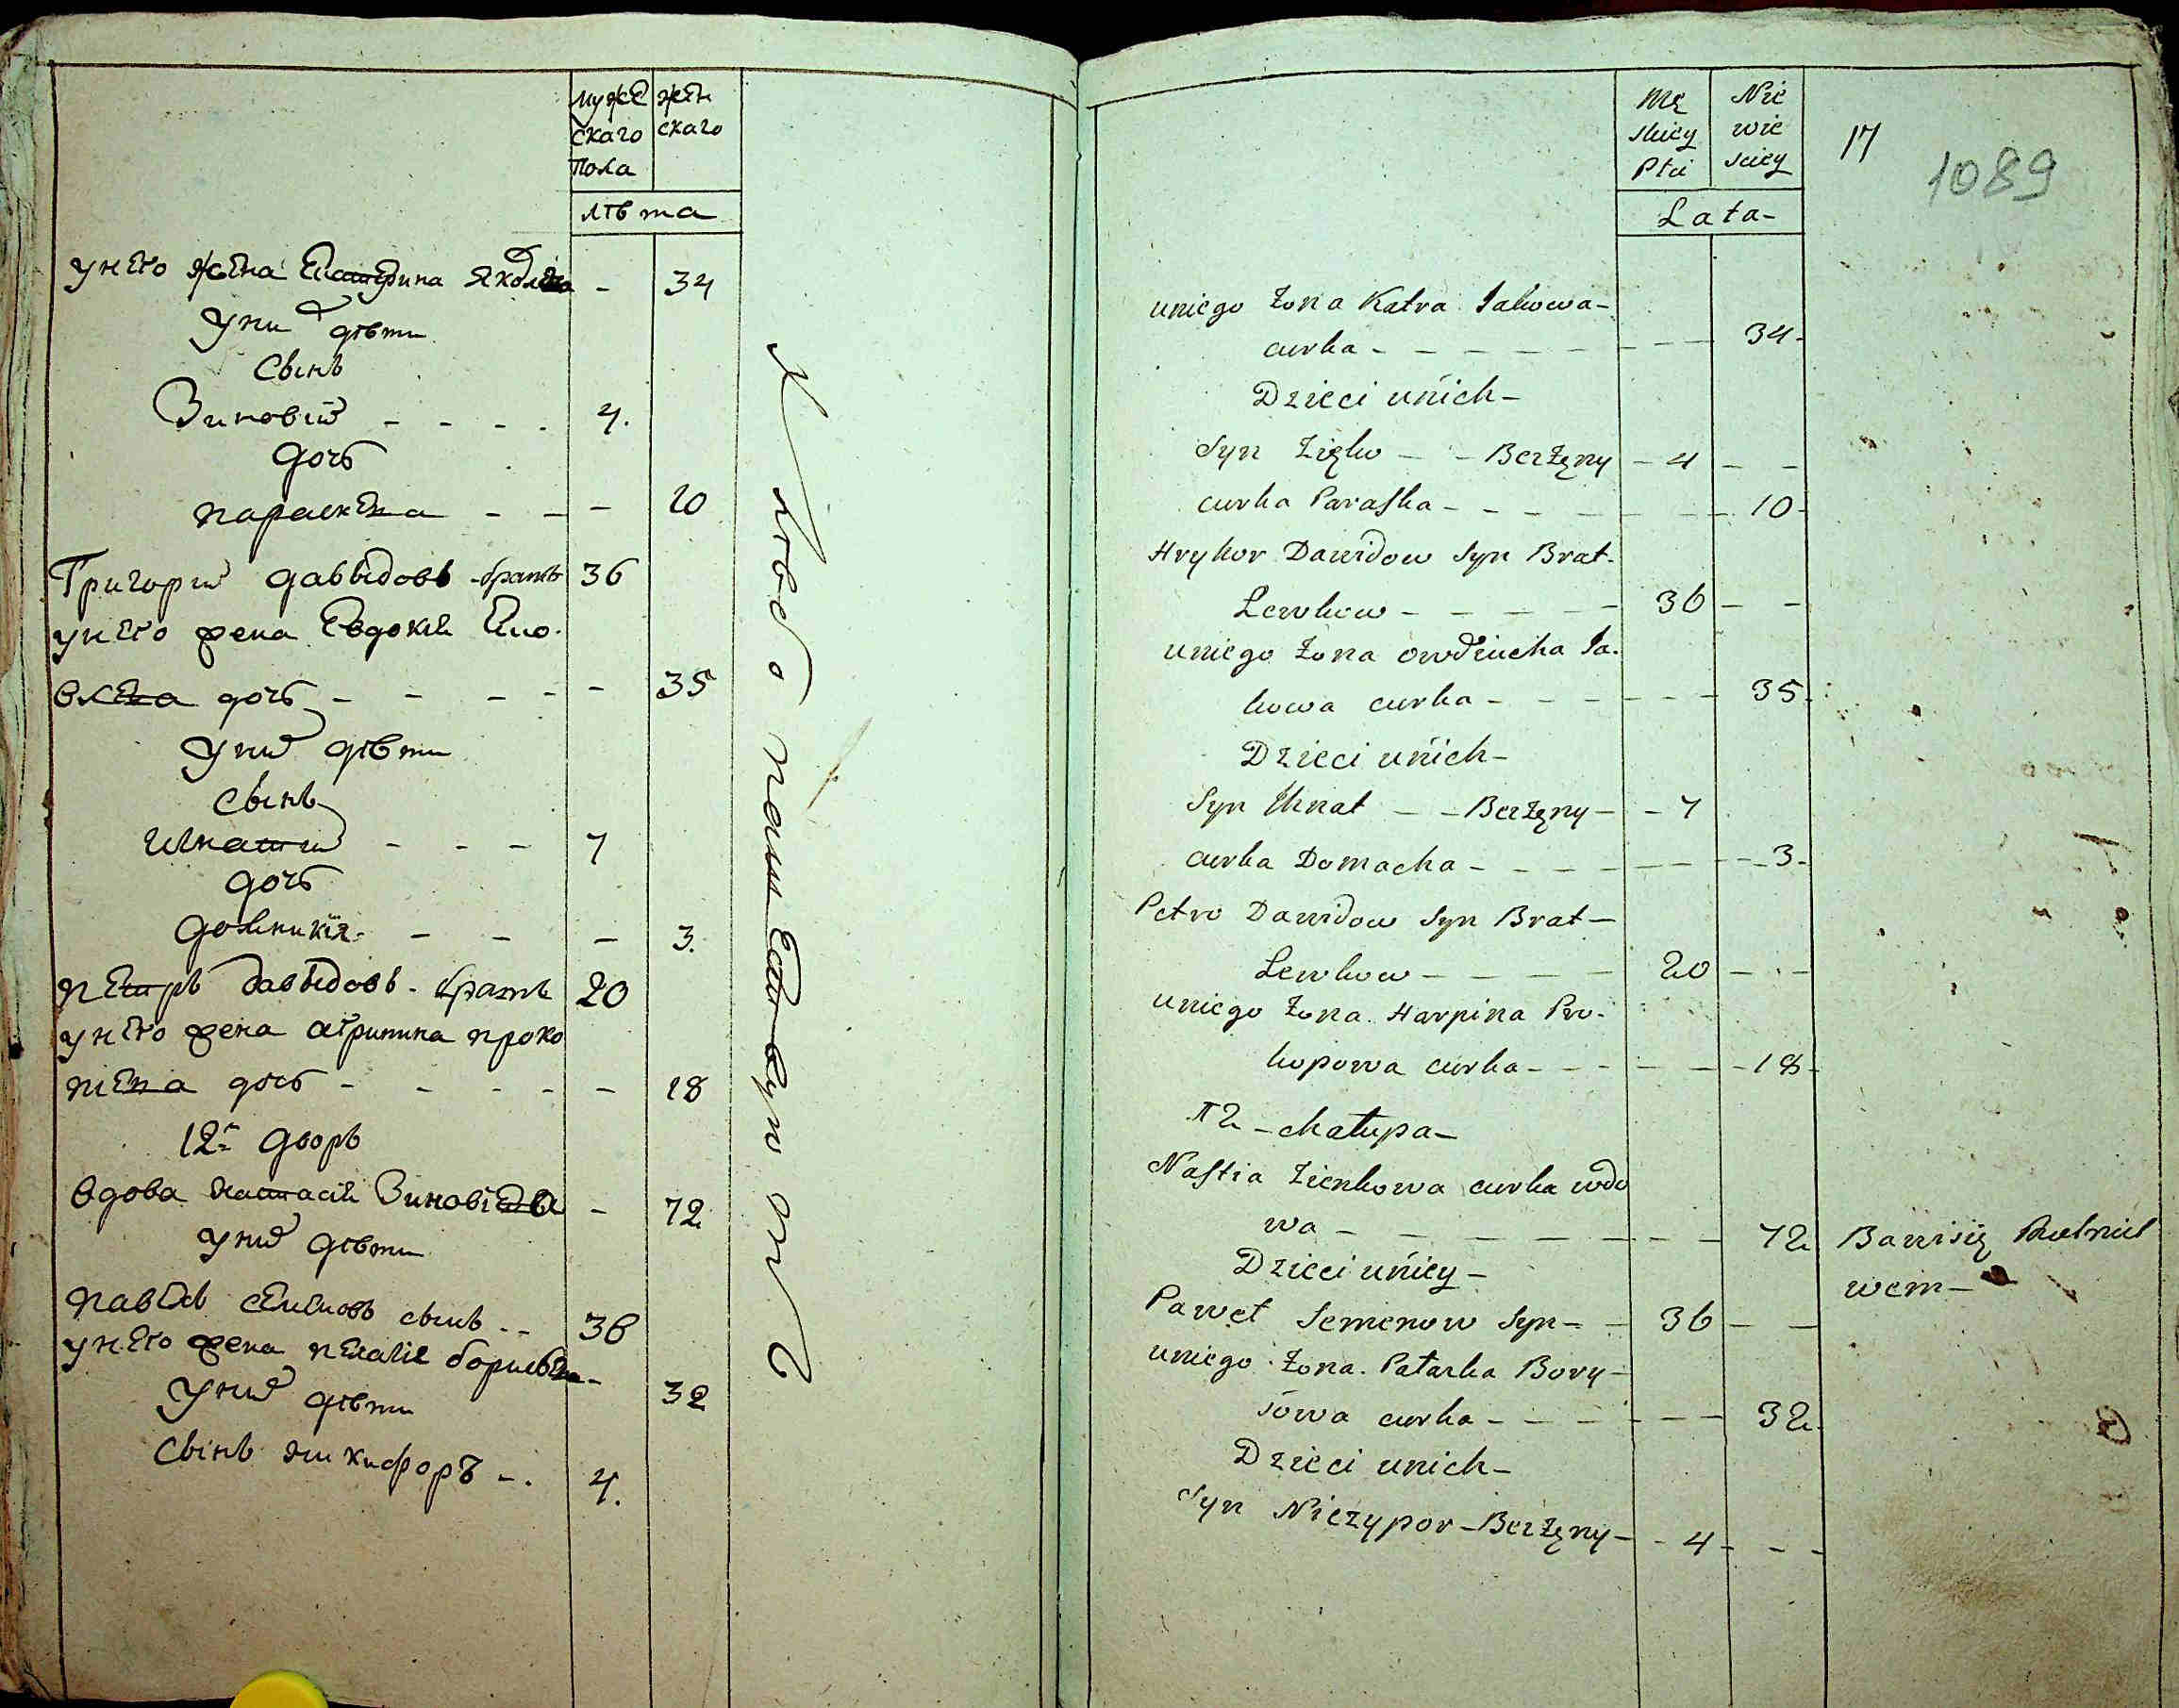 муже
скаго
пола
жен
скаго
лѣта
у него жена Екатерина Яковлева - 34
у ни дѣти
Сынъ
Зиновій - - - - 4.
дочь
параскева - - - 10
Григорий давыдовъ братъ 36
у него жена Евдокия Яко
влева дочь - - - - - 35
у них дѣти
сынъ
Игнатий - - - 7
дочь
домникия - - - 3.
петръ давыдовъ - братъ 20
у него жена агрипина проко
пиева дочь - - - - - 18
12й дворъ
вдова настасия Зиновиева - 72
у ней дѣти
павелъ семеновъ сынъ - - 36
у него жена пелагие борисова - 32
у них дѣти
сынъ никифоръ - . 4.
Mę
skiey
Płci
Nie
wie
sciey
17
1089
Lata -
u niego żona Katra Jakowa -
curka - - - - - - - - 34 -
Dzieci unich -
Syn Zięko - - Berżęny - 4 - -
curka Paraska - - - - - - - 10 -
Hryhor Dawidow Syn Brat -
Lewkow - - - - - 36 - -
u niego żona owdziucha Ja -
kowa curka - - - - - - 35 -
Dzieci unich -
Syn Ihnat - - Berżęny - - 7
curka Domacha - - - - - - - - 3 -
Petro Dawidow Syn Brat -
Lewkow - - - - - 20 - - -
u niego żona Harpina Pro -
kopowa curka - - - - - - 18 -
12 - chałupa -
Nastia Zienkowa curka wdo
wa - - - - - - - - 72
Bawisię
wem -
Dzieci uniey -
Paweł Semenow Syn - - 36 - -
u niego żona Pałazka Bory -
sowa curka - - - - - - 32 -
Dzieci unich -
Syn Niczypor - Berżęny - - 4 - - -